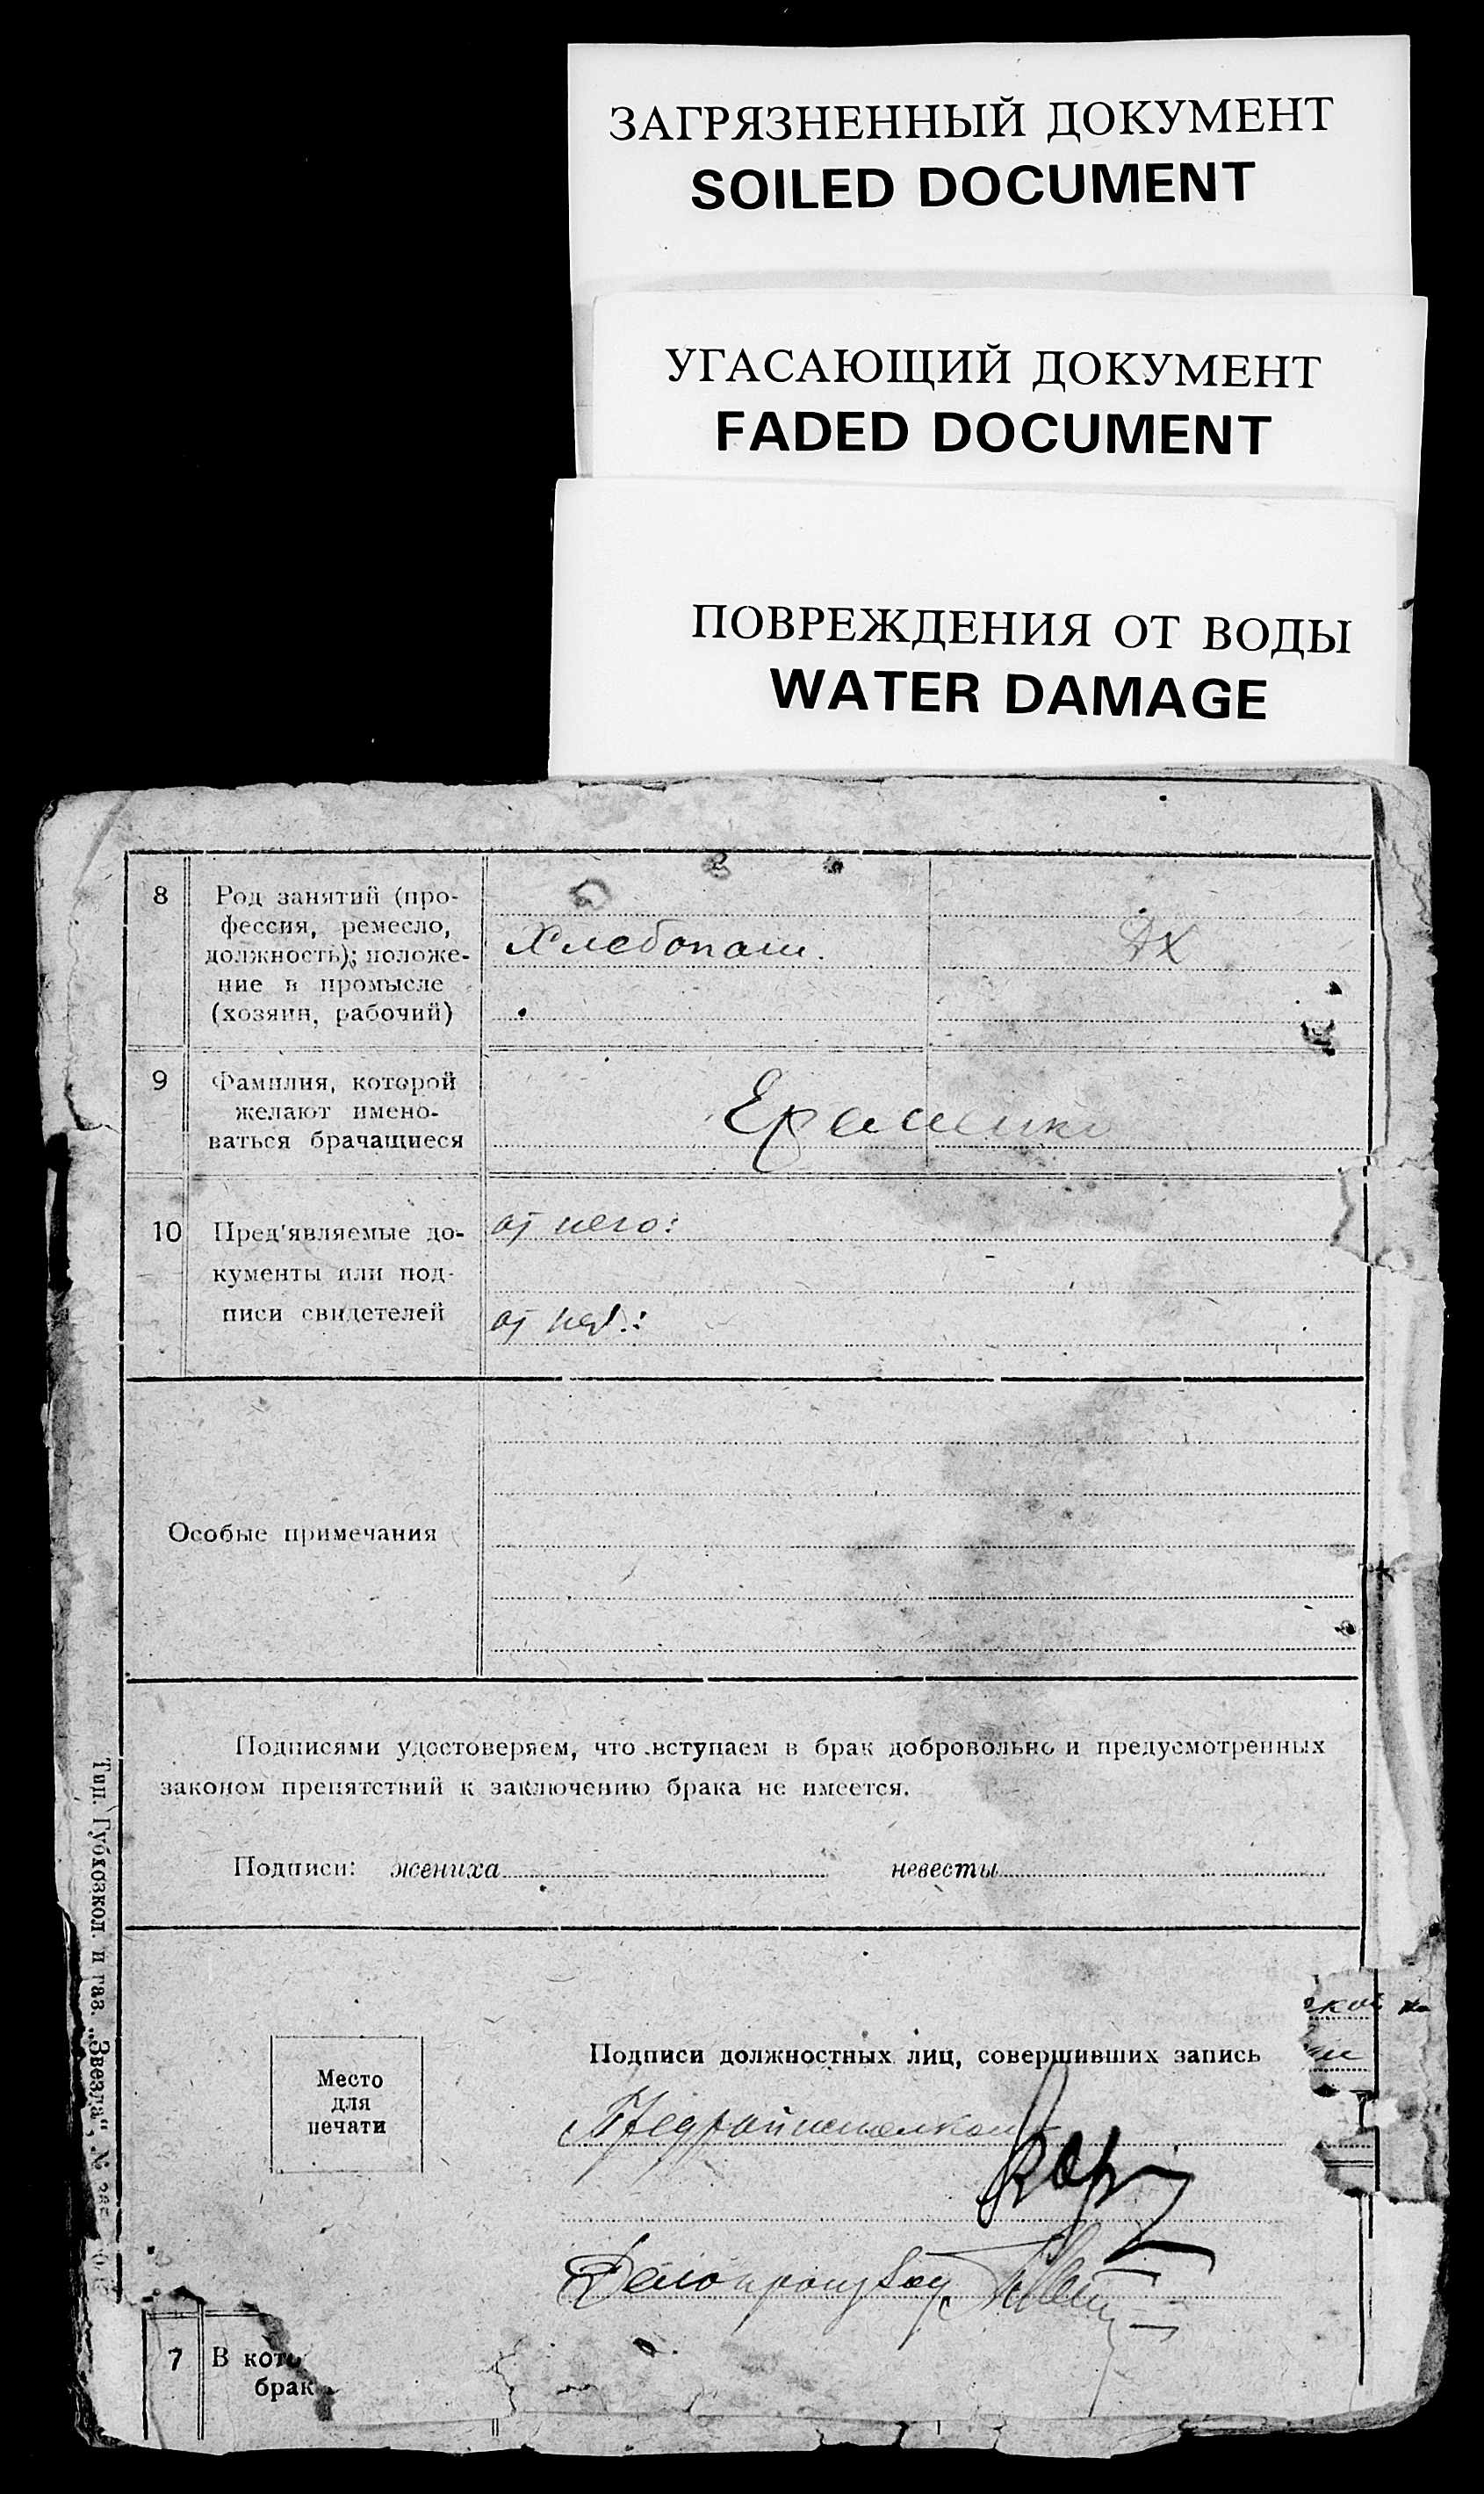 ЗАГРЯЗНЕННЫЙ ДОКУМЕНТ
SOILED DOCUMENT
УГАСАЮЩИЙ ДОКУМЕНТ
FADED DOCUMENT
ПОВРЕЖДЕНИЯ ОТ ВОДЫ
WATER DAMAGE
8 Род занятий (про-
фессия, ремесло,
должность); положе-
ние в промысле
(хозяин, рабочий)
Хлебопаш.
дх
9 Фамилия, которой
желают имено-
ваться брачащиеся
10 Пред'являемые до-
кументы или под-
писи свидетелей
от него:
от неё:
Особые примечания
Подписями удостоверяем, что вступаем в брак добровольно и предусмотренных
законом препятствий к заключению брака не имеется.
Подписи: жениха невесты
Место
для
печати
Подписи должностных лиц, совершивших запись
Предрайисполкома
Делопроизвод
7 В кото
брак
Тип. Губкозкол. и газ. „Звезда", №